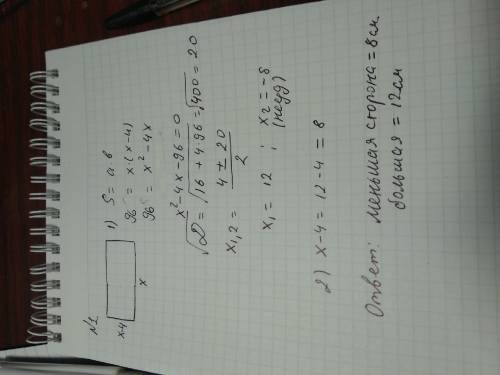 №1
x-4
x
1) S = a·в
96 = x·(x-4)
96 = x² - 4x
x² - 4x - 96 = 0
√D = √16 + 4·96 = √400 = 20
x₁,₂ = (4 ± 20)/2
x₁ = 12 ; x₂ = -8
(неуд)
2) x-4 = 12-4 = 8
Ответ: меньшая сторона = 8 см
большая = 12 см